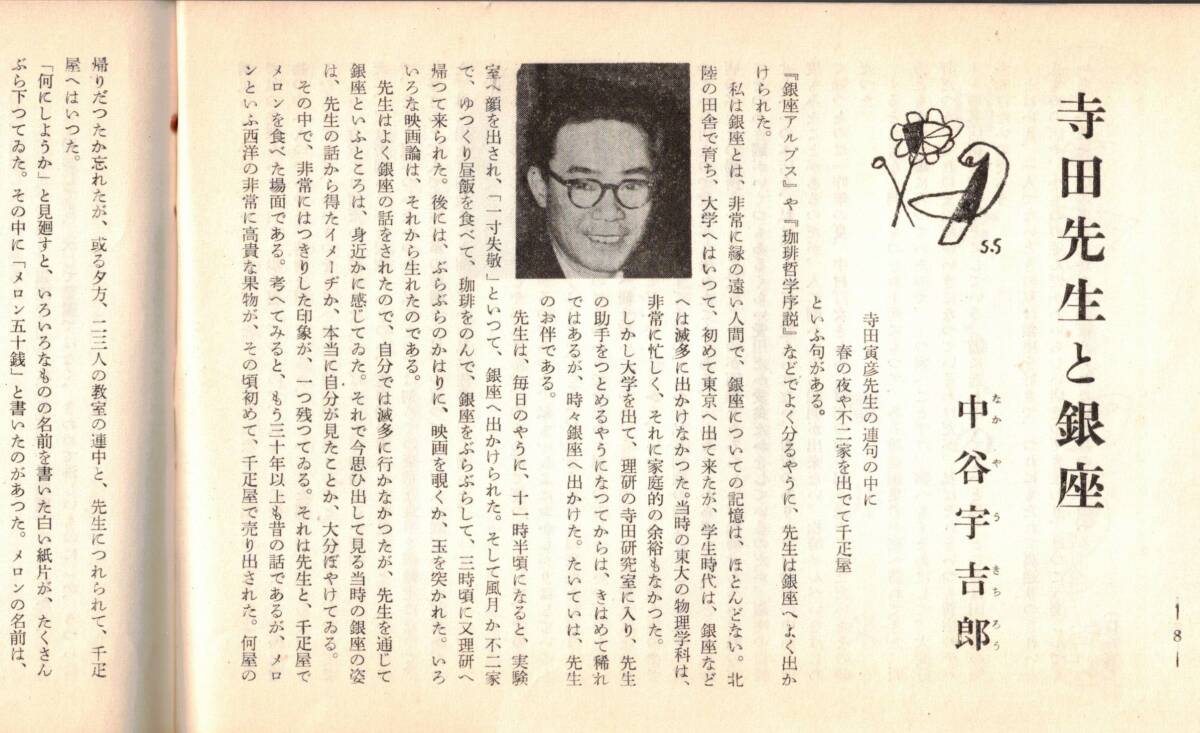 寺田先生と銀座
中谷宇吉郎
なかやうきちろう
S.S
寺田寅彦先生の連句の中に
春の夜や不二家を出でて千疋屋
といふ句がある。
『銀座アルプス』や『珈琲哲学序説』などでよく分るやうに、先生は銀座へよく出か
けられた。
私は銀座とは、非常に縁の遠い人間で、銀座についての記憶は、ほとんどない。北
陸の田舎で育ち、大学へはいつて、初めて東京へ出て来たが、学生時代は、銀座など
へは滅多に出かけなかつた。当時の東大の物理学科は、
非常に忙しく、それに家庭的の余裕もなかつた。
しかし大学を出て、理研の寺田研究室に入り、先生
の助手をつとめるやうになつてからは、きはめて稀れ
ではあるが、時々銀座へ出かけた。たいていは、先生
のお伴である。
先生は、毎日のやうに、十一時半頃になると、実験
室へ顔を出され、「一寸失敬」といつて、銀座へ出かけられた。そして風月か不二家
で、ゆつくり昼飯を食べて、珈琲をのんで、銀座をぶらぶらして、三時頃に又理研へ
帰つて来られた。後には、ぶらぶらのかはりに、映画を覗くか、玉を突かれた。いろ
いろな映画論は、それから生れたのである。
先生はよく銀座の話をされたので、自分では滅多に行かなかつたが、先生を通じて
銀座といふところは、身近かに感じてゐた。それで今思ひ出して見る当時の銀座の姿
は、先生の話から得たイメーヂか、本当に自分が見たことか、大分ぼやけてゐる。
その中で、非常にはつきりした印象が、一つ残つてゐる。それは先生と、千疋屋で
メロンを食べた場面である。考へてみると、もう三十年以上も昔の話であるが、メロ
ンといふ西洋の非常に高貴な果物が、その頃初めて、千疋屋で売り出された。何屋の
—8—
帰りだつたか忘れたが、或る夕方、二三人の教室の連中と、先生につれられて、千疋
屋へはいつた。
「何にしようか」と見廻すと、いろいろなものの名前を書いた白い紙片が、たくさん
ぶら下つてゐた。その中に「メロン五十銭」と書いたのがあつた。メロンの名前は、